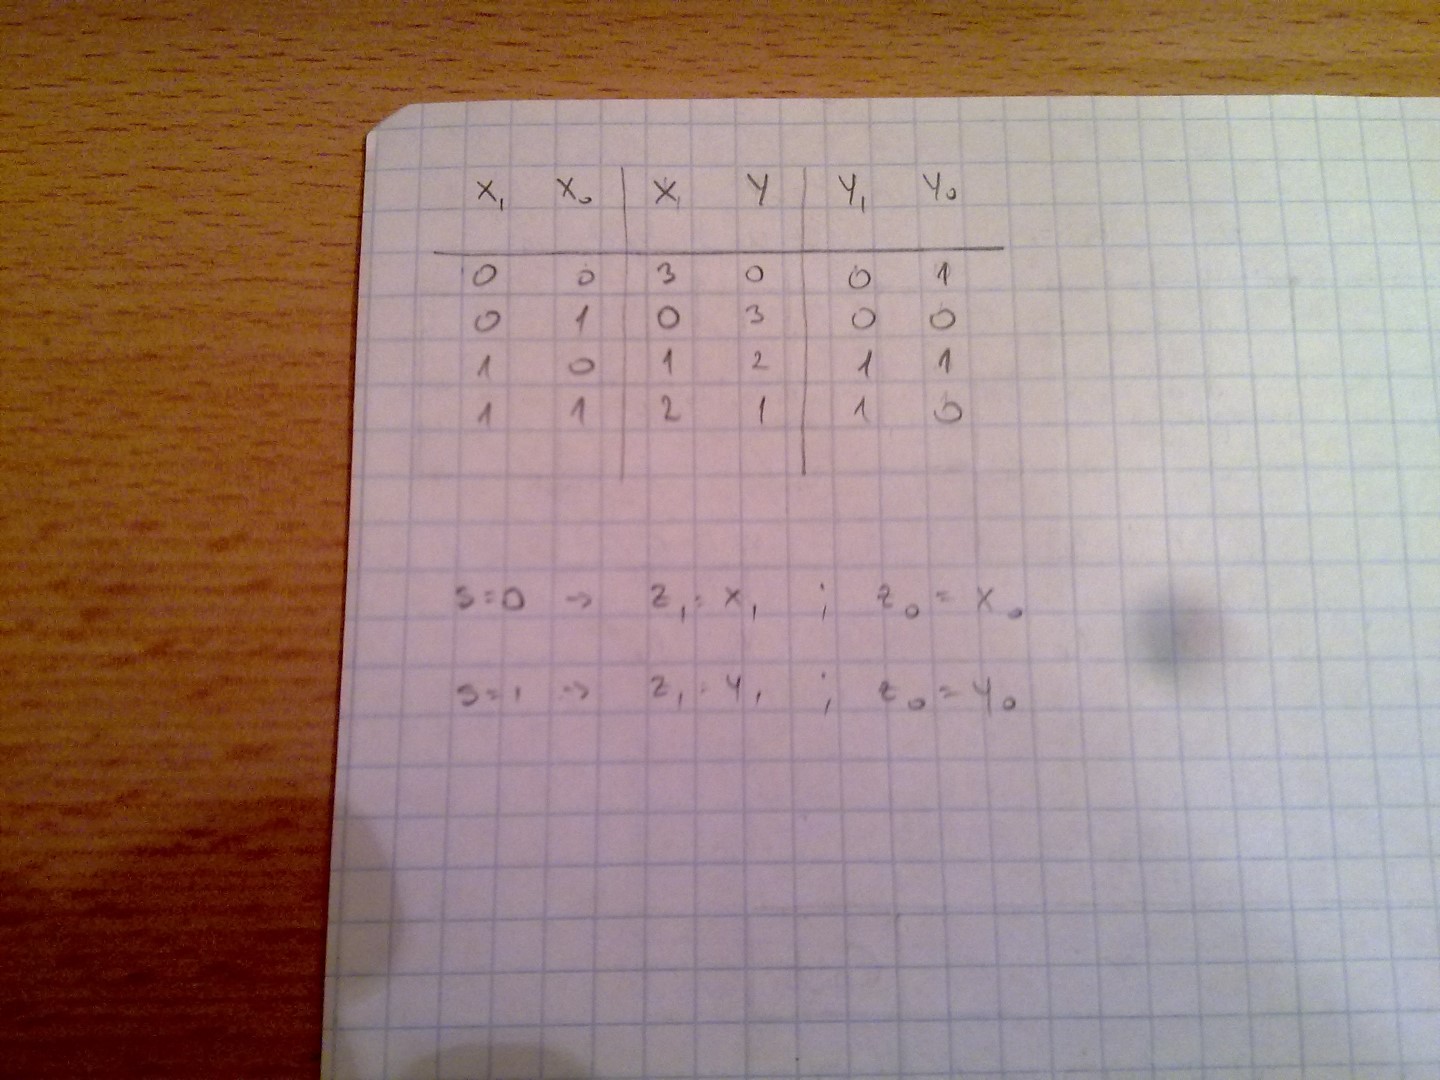 X₁ X₀ X Y Y₁ Y₀
0 0 3 0 0 1
0 1 0 3 0 0
1 0 1 2 1 1
1 1 2 1 1 0
S=0 → Z₁ = X₁ ; Z₀ = X₀
S=1 → Z₁ = Y₁ ; Z₀ = Y₀